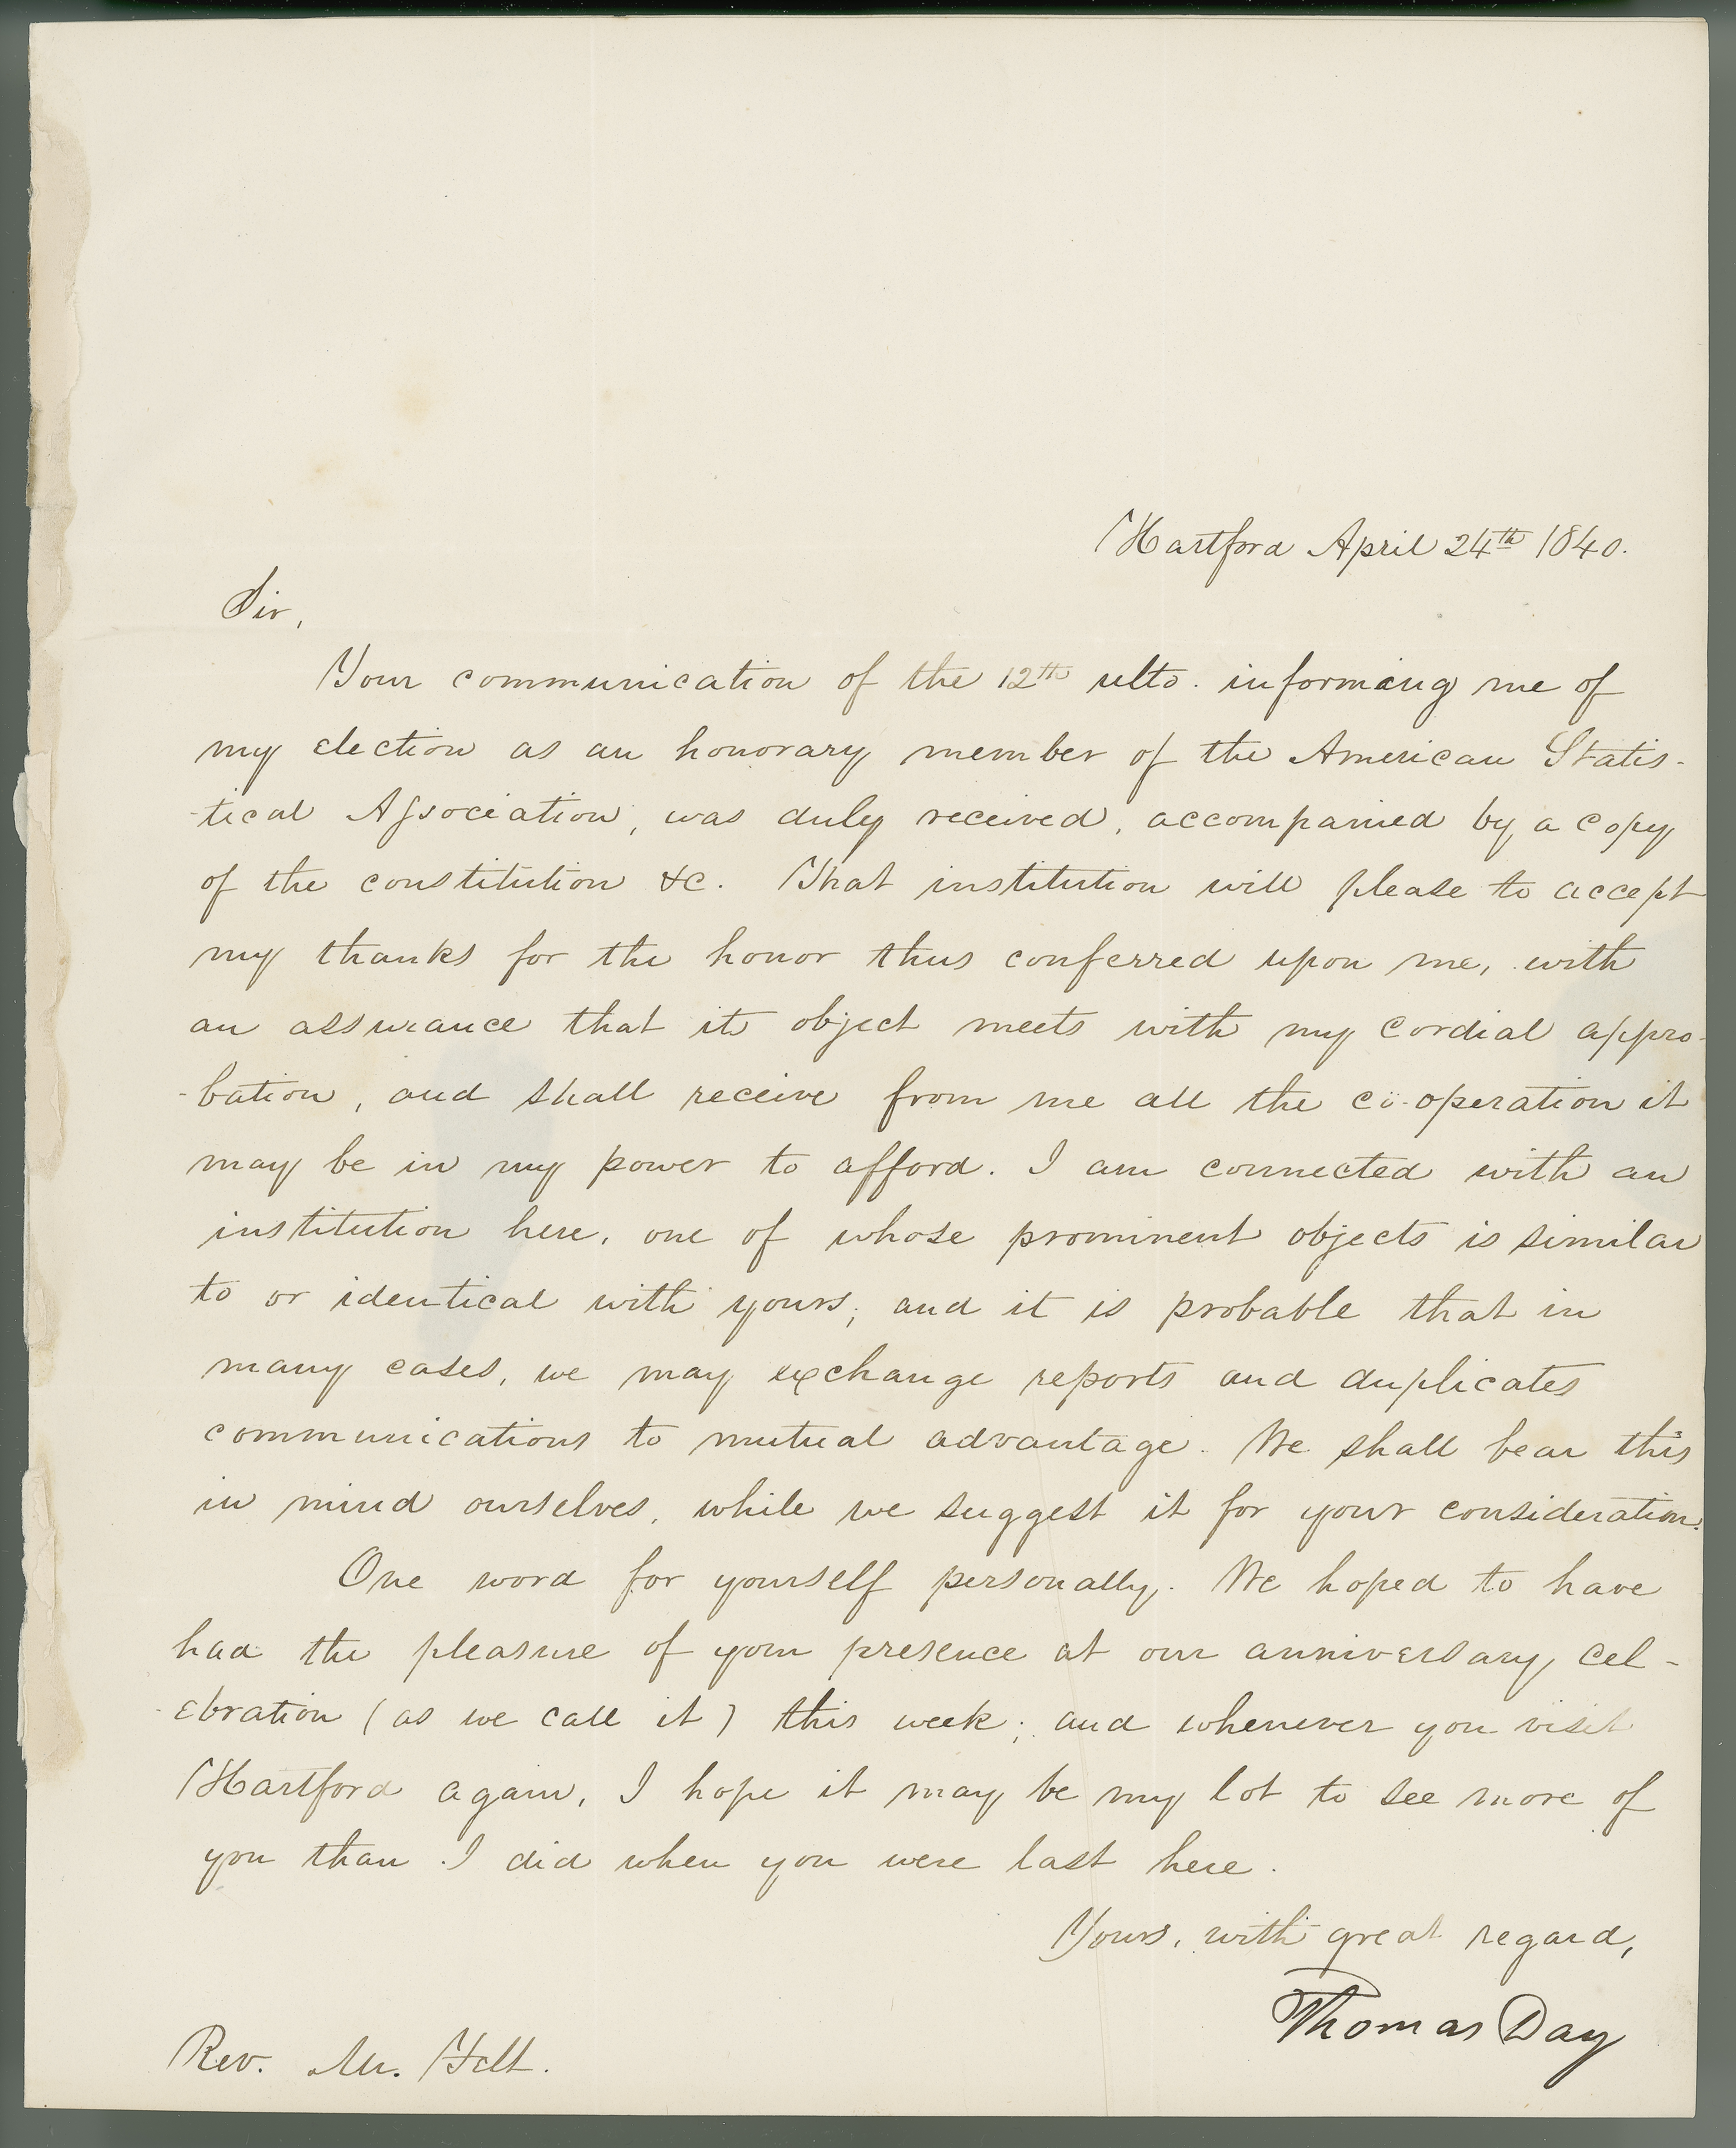 Hartford April 24th 1840.
Sir,
Your communication of the 12th ulto. informing me of
my election as an honorary member of the American Statis-
-tical Association, was duly received, accompanied by a copy
of the constitution &c. That institution will please to accept
my thanks for the honor thus conferred upon me, with
an assurance that its object meets with my cordial appro-
-bation, and shall receive from me all the coöperation it
may be in my power to afford. I am connected with an
institution here, one of whose prominent objects is similar
to or identical with yours; and it is probable that in
many cases, we may exchange reports and duplicates
communications to mutual advantage. We shall bear this
in mind ourselves, while we suggest it for your consideration.
One word for yourself personally. We hoped to have
had the pleasure of your presence at our anniversary cel-
-ebration (as we call it) this week; and whenever you visit
Hartford again, I hope it may be my lot to see more of
you than I did when you were last here.
Yours, with great regard,
Thomas Day
Rev. Mr. Felt.